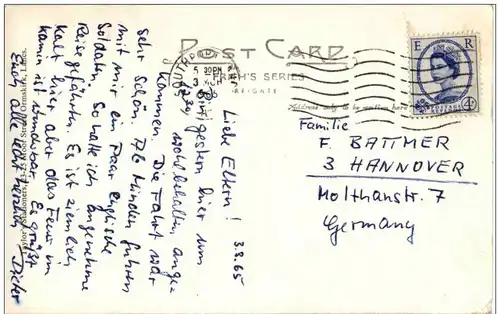 POST CARD
FRITH'S SERIES
REIGATE
5 30PM
3 MCH
E R
POSTAGE
4D
Address only to be written here
3.3.65
Liebe Eltern!
Bin gestern hier um
wohlbehalten ange-
kommen. Die Fahrt war
sehr schön. Ab Minden fuhren
mit mir ein Paar englische
Soldaten. So hatte ich angenehme
Reisegefährten. Es ist ziemlich
kalt hier, aber das Feuer im
Kamin ist wunderbar. Es grüßt
Euch alle recht herzlich Dieter
Stationers, Moor Street, Ormskirk, Lancs.
Familie
F. BATTMER
3 HANNOVER
Molthanstr. 7
Germany